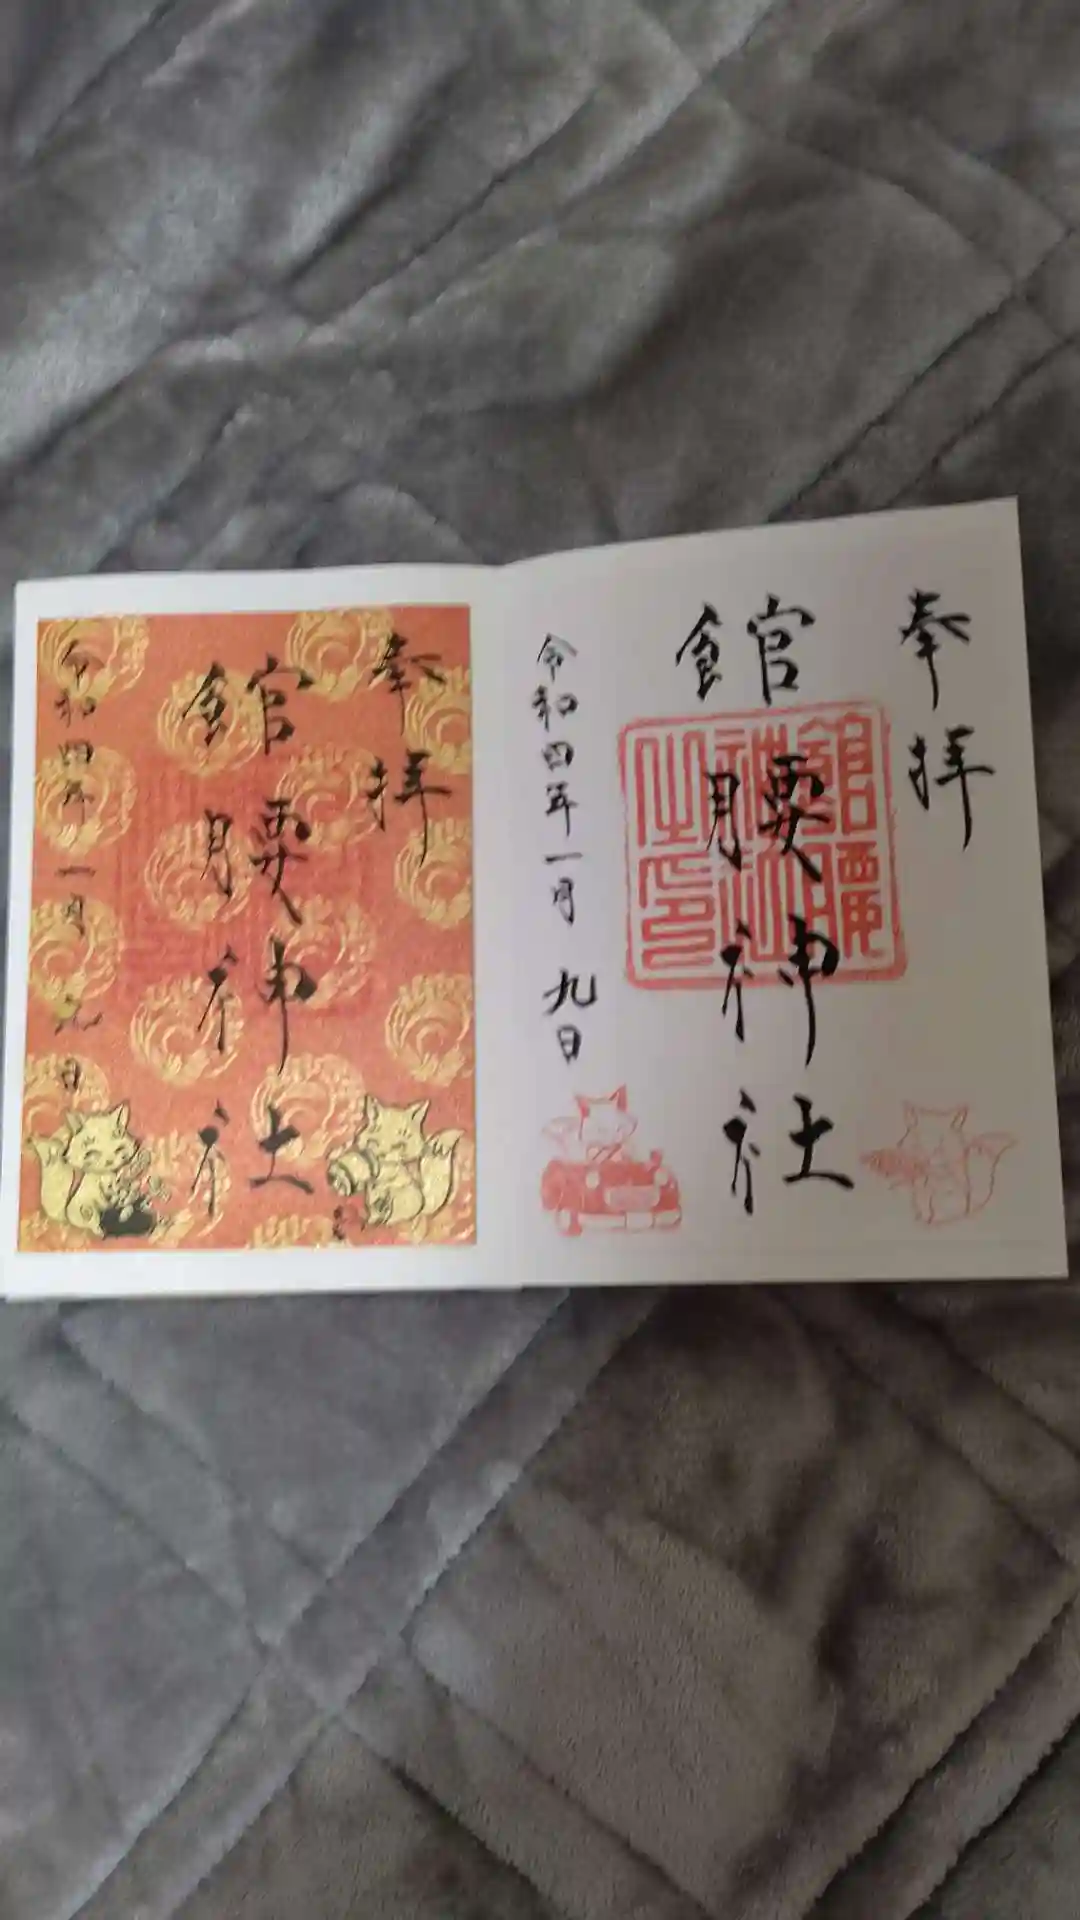 奉拝
館腰神社
令和四年一月九日
奉拝
館腰神社
令和四年一月九日